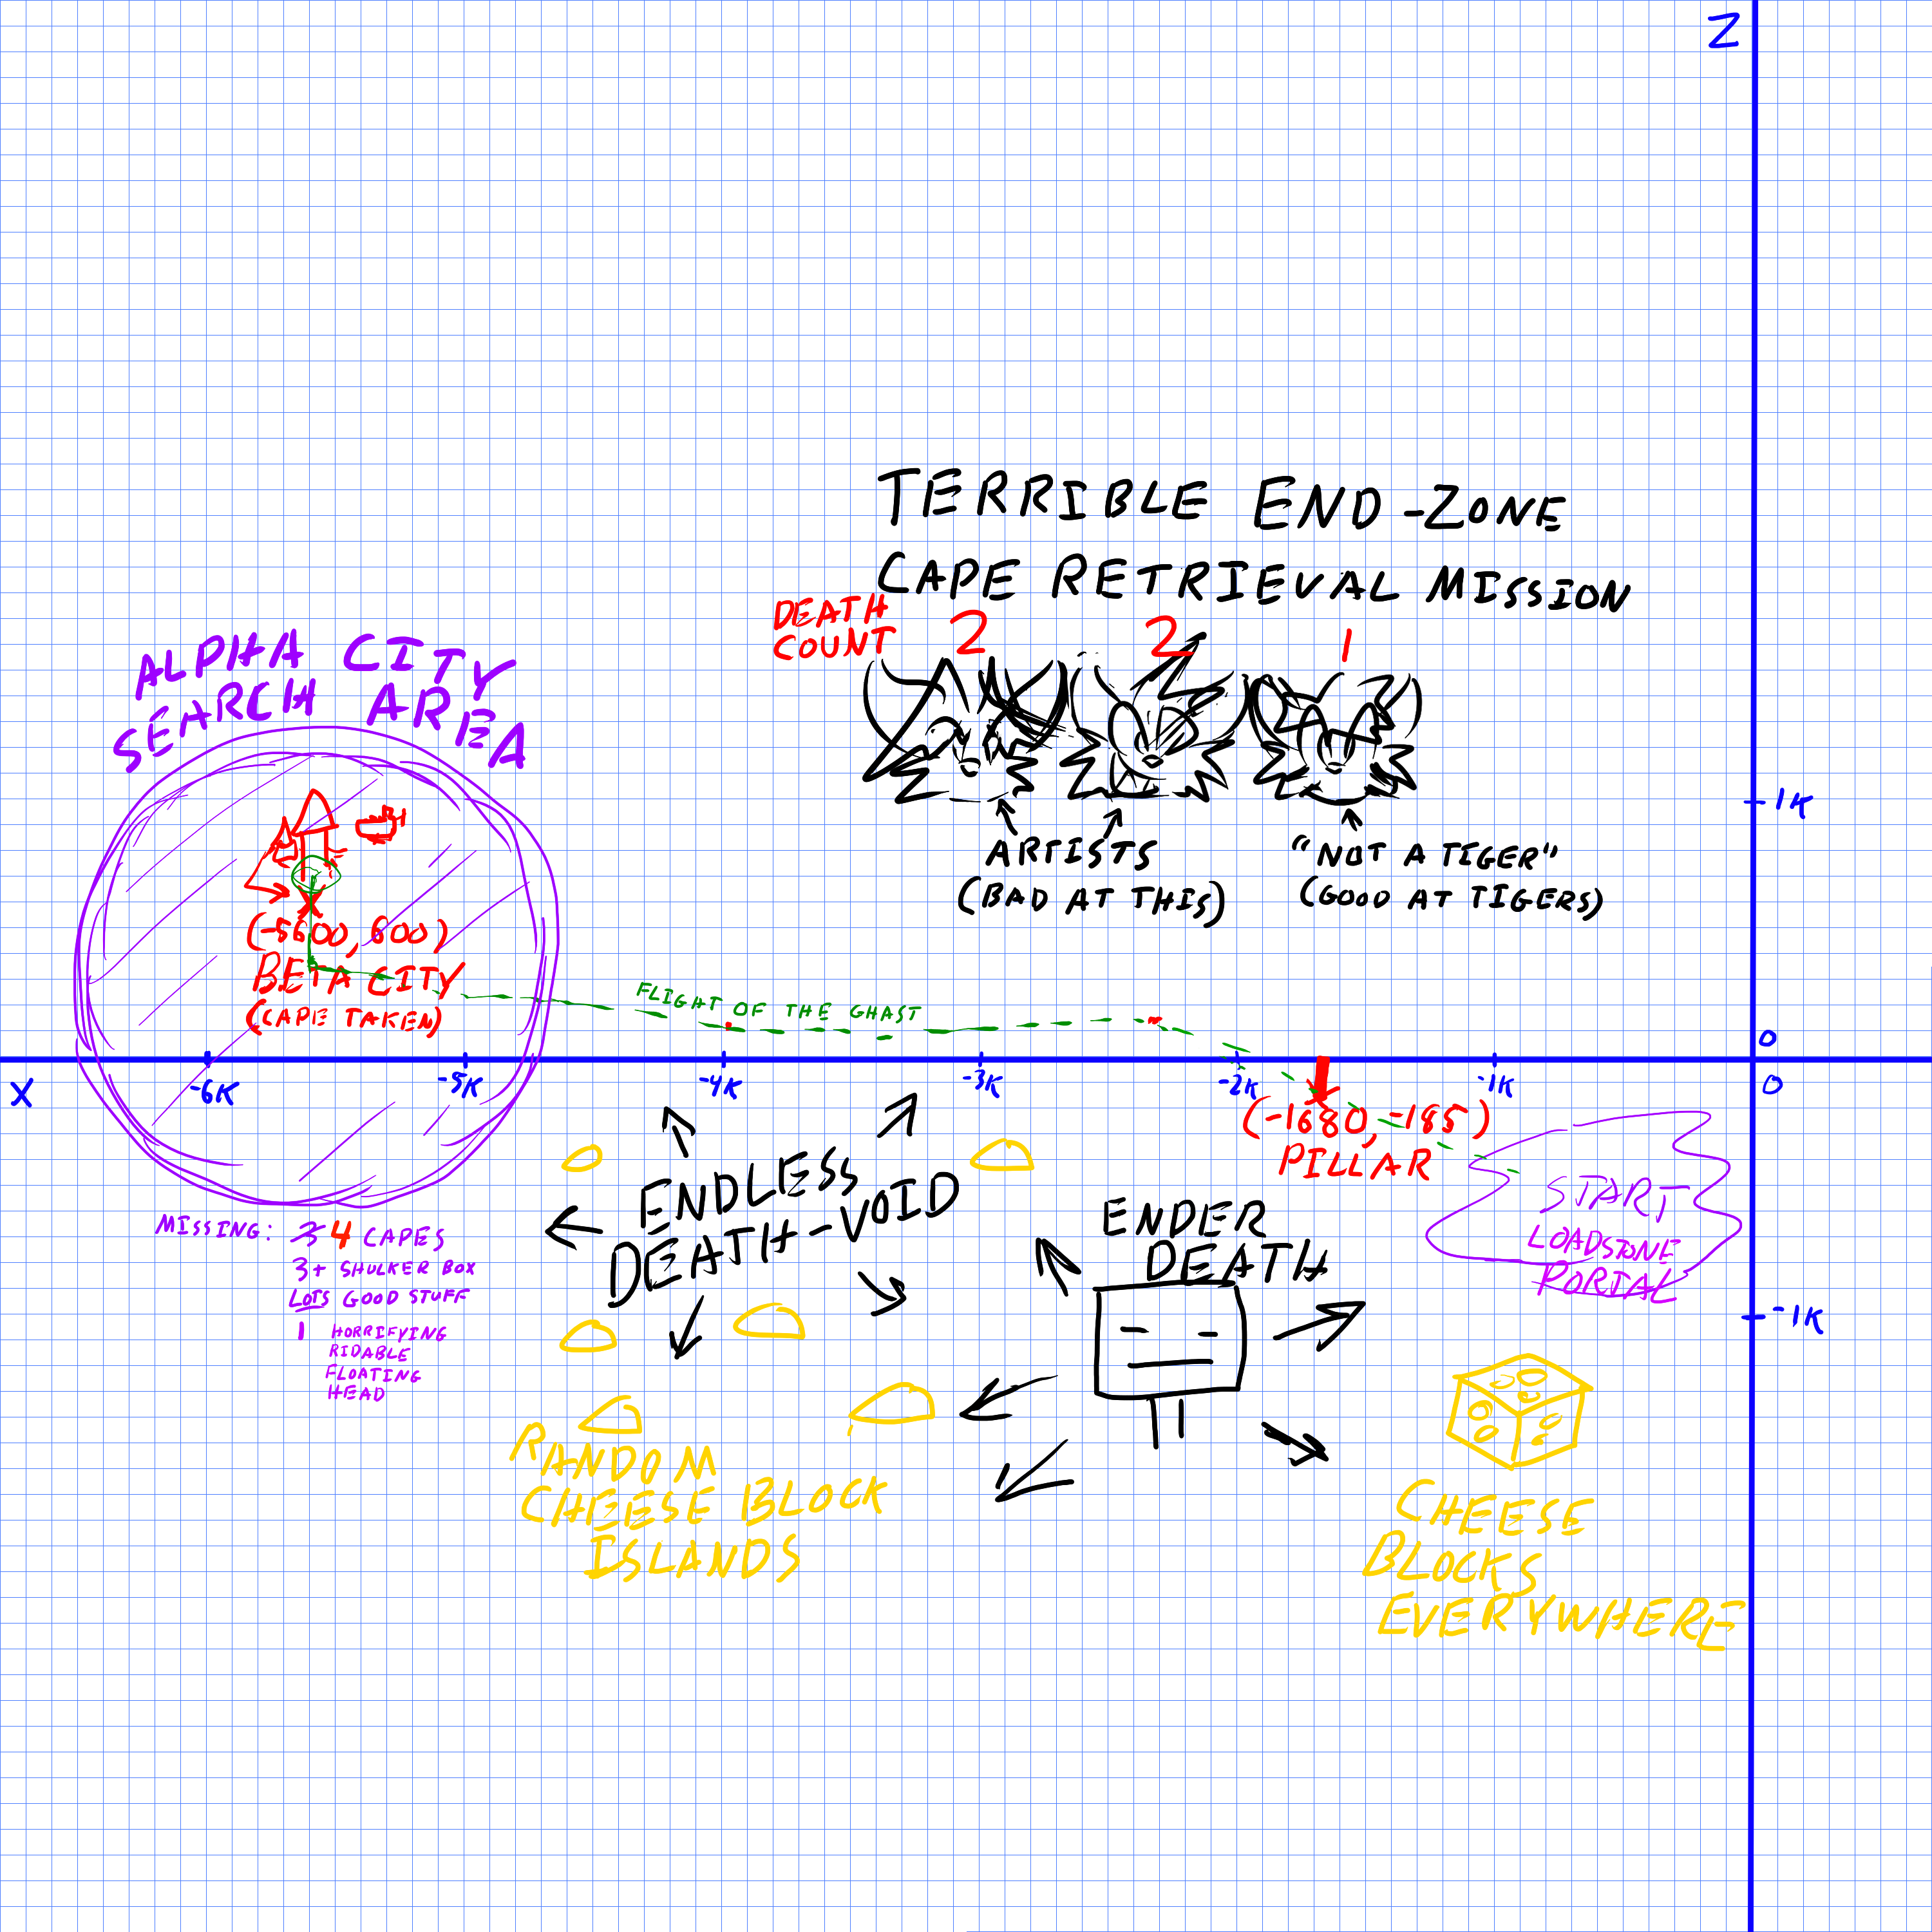 Z
TERRIBLE END-ZONE
CAPE RETRIEVAL MISSION
DEATH
COUNT
2
2
1
ARTISTS
(BAD AT THIS)
"NOT A TIGER"
(GOOD AT TIGERS)
ALPHA CITY
SEARCH AREA
X
(-5600, 600)
BETA CITY
(CAPE TAKEN)
FLIGHT OF THE GHAST
1K
0
0
X
-6K
-5K
-4K
-3K
-2K
-1K
(-1680, -185)
PILLAR
START
LOADSTONE
PORTAL
-1K
ENDLESS
DEATH-VOID
ENDER
DEATH
MISSING: 3 4 CAPES
3+ SHULKER BOX
LOTS GOOD STUFF
1 HORRIFYING
RIDABLE
FLOATING
HEAD
RANDOM
CHEESE BLOCK
ISLANDS
CHEESE
BLOCKS
EVERYWHERE